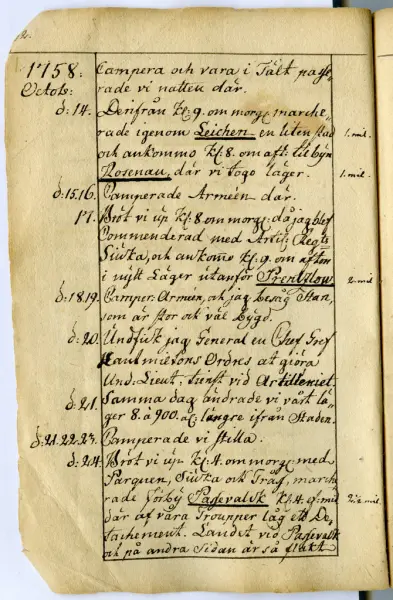 1758. Campera och vara i Tält passe-
Octob: rade vi natten där.
d: 14. Derifrån kl: 9. om morg: marche-
rade igenom Leichen en liten stad 1. mil.
och ankommo kl: 8. om aft: til byn
Rosenau, där vi togo läger. 1. mil.
d: 15.16. Camperade Arméen där.
17. Bröt vi up kl: 8 om morg: då jag blef
Commenderad med Artil: Regts
Siuka, och ankome kl: 9. om afton
i nytt Läger utanför Prentzlow 2. mil
d: 18.19. Camper: Arméen, och jag besåg Stan,
som är stor och väl bygd.
d: 20. Undfick jag General en Chef Gref
Ordres at giöra
Und: Lieut: tienst vid Artilleriet.
d: 21. Samma dag ändrade vi vårt lä-
ger 8. à 900. al: längre ifrån Staden.
d: 21.22.23. Camperade vi stilla.
d: 24. Bröt vi up kl: 4. om morg: med
Parquen, Siuka och Träs, marche-
rade förby Pasevalsk kl. 4. e: mid 2½ mil.
där af våra Troupper låg ett De-
tachement. Landet vid Pasevalk
och på andra Sidan är så flakt